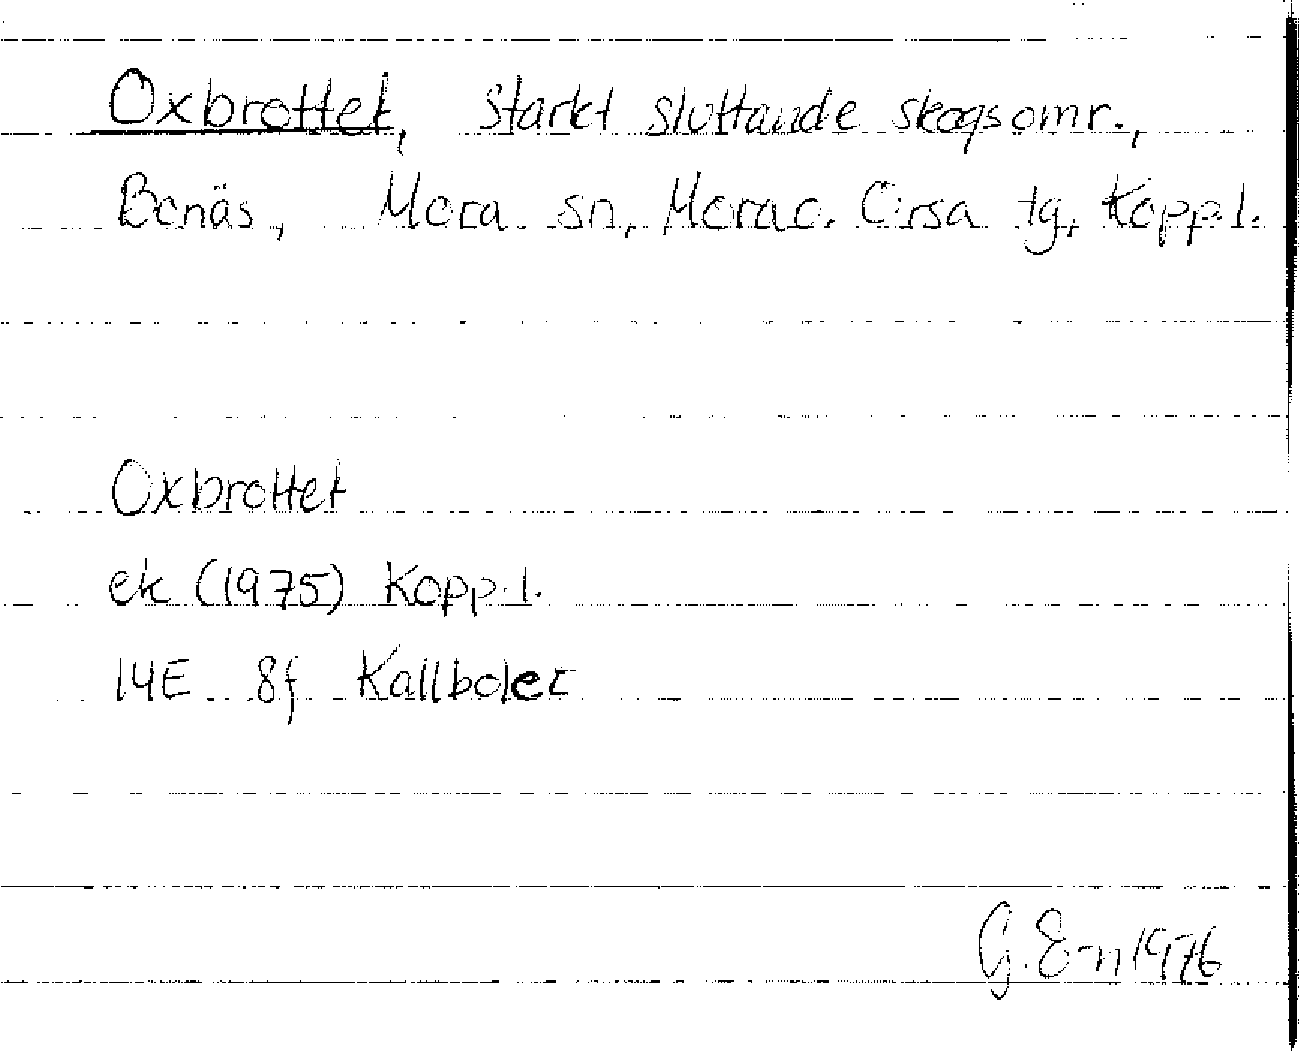 Oxbrottet, starkt sluttande skogsomr.,
Bonäs, Mora sn, Mora o. Orsa tg, Kopp.l.
Oxbrottet
ek (1975) Kopp.l.
14E 8f Kallbolet
G. E-n 1976